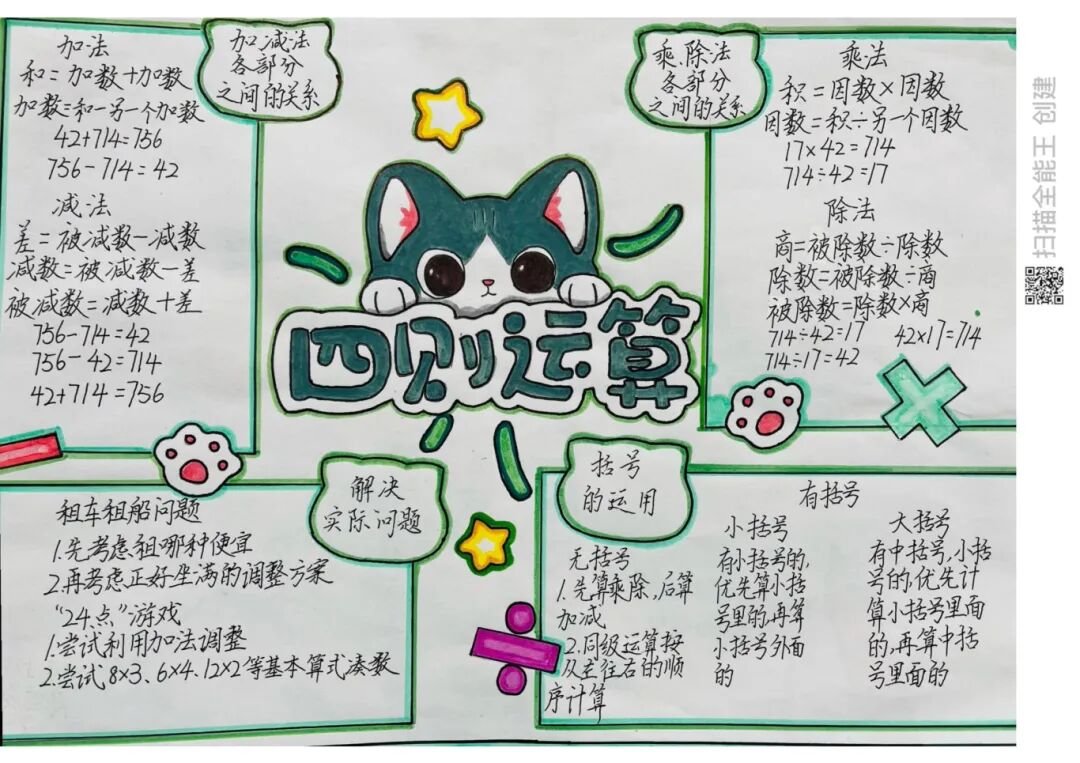 加减法
各部分
之间的关系
加法
和=加数+加数
加数=和-另一个加数
42+714=756
756-714=42
减法
差=被减数-减数
减数=被减数-差
被减数=减数+差
756-714=42
756-42=714
42+714=756
乘、除法
各部分
之间的关系
乘法
积=因数×因数
因数=积÷另一个因数
17×42=714
714÷42=17
除法
商=被除数÷除数
除数=被除数÷商
被除数=除数×商
714÷42=17 42×17=714
714÷17=42
四则运算
解决
实际问题
租车租船问题
1.先考虑租哪种便宜
2.再考虑正好坐满的调整方案
“24点”游戏
1.尝试利用加法调整
2.尝试8×3、6×4、12×2等基本算式凑数
括号
的运用
无括号
1.先算乘除,后算
加减
2.同级运算按
从左往右的顺
序计算
有括号
小括号
有小括号的,
优先算小括
号里的,再算
小括号外面
的
大括号
有中括号,小括
号的,优先计
算小括号里面
的,再算中括
号里面的
扫描全能王 创建